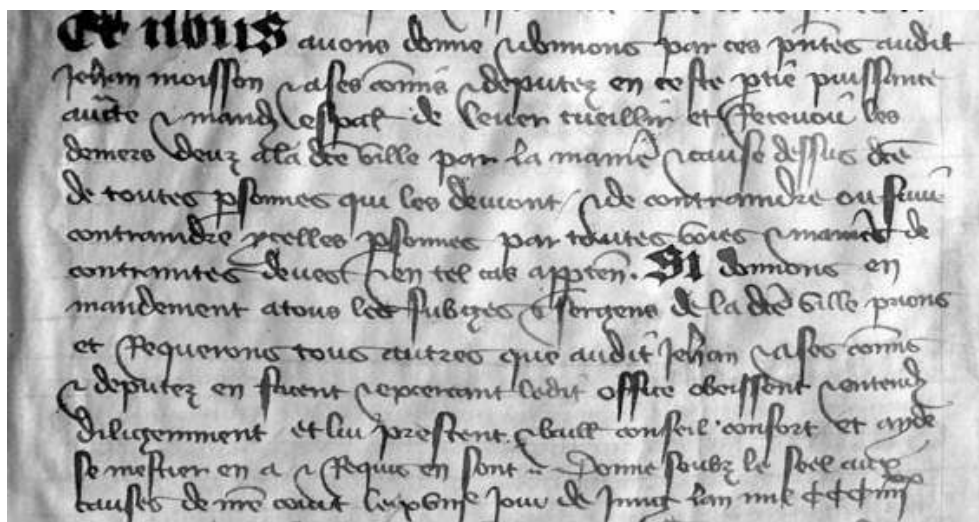 Et nous avons donne & donnons par ces pñtes audit
Jehan moisson & a ses cõmis & deputez en ceste ptie puissance
aucte & mand espal de lever cueillir et Recevoir les
deniers deuz a la dce ville par la manie & cause dessus dce
de toutes psonnes qui les devront & de contraindre ou fere
contraindre ycelles psonnes par toutes voies & manies de
contraintes & en tel cas apptñ. Si donnons en
mandement a tous les subgés & sergens de la dce ville prions
et Requerons tous autres que audit Jehan & a ses cõmis
& deputez en faisant & excercant ledit office obeissent & entend
diligemment et lui prestent & baill conseil confort et ayde
se mestier en a & Requis en sont Donne soubz le seel aux
causes de jour de Juing lan mil